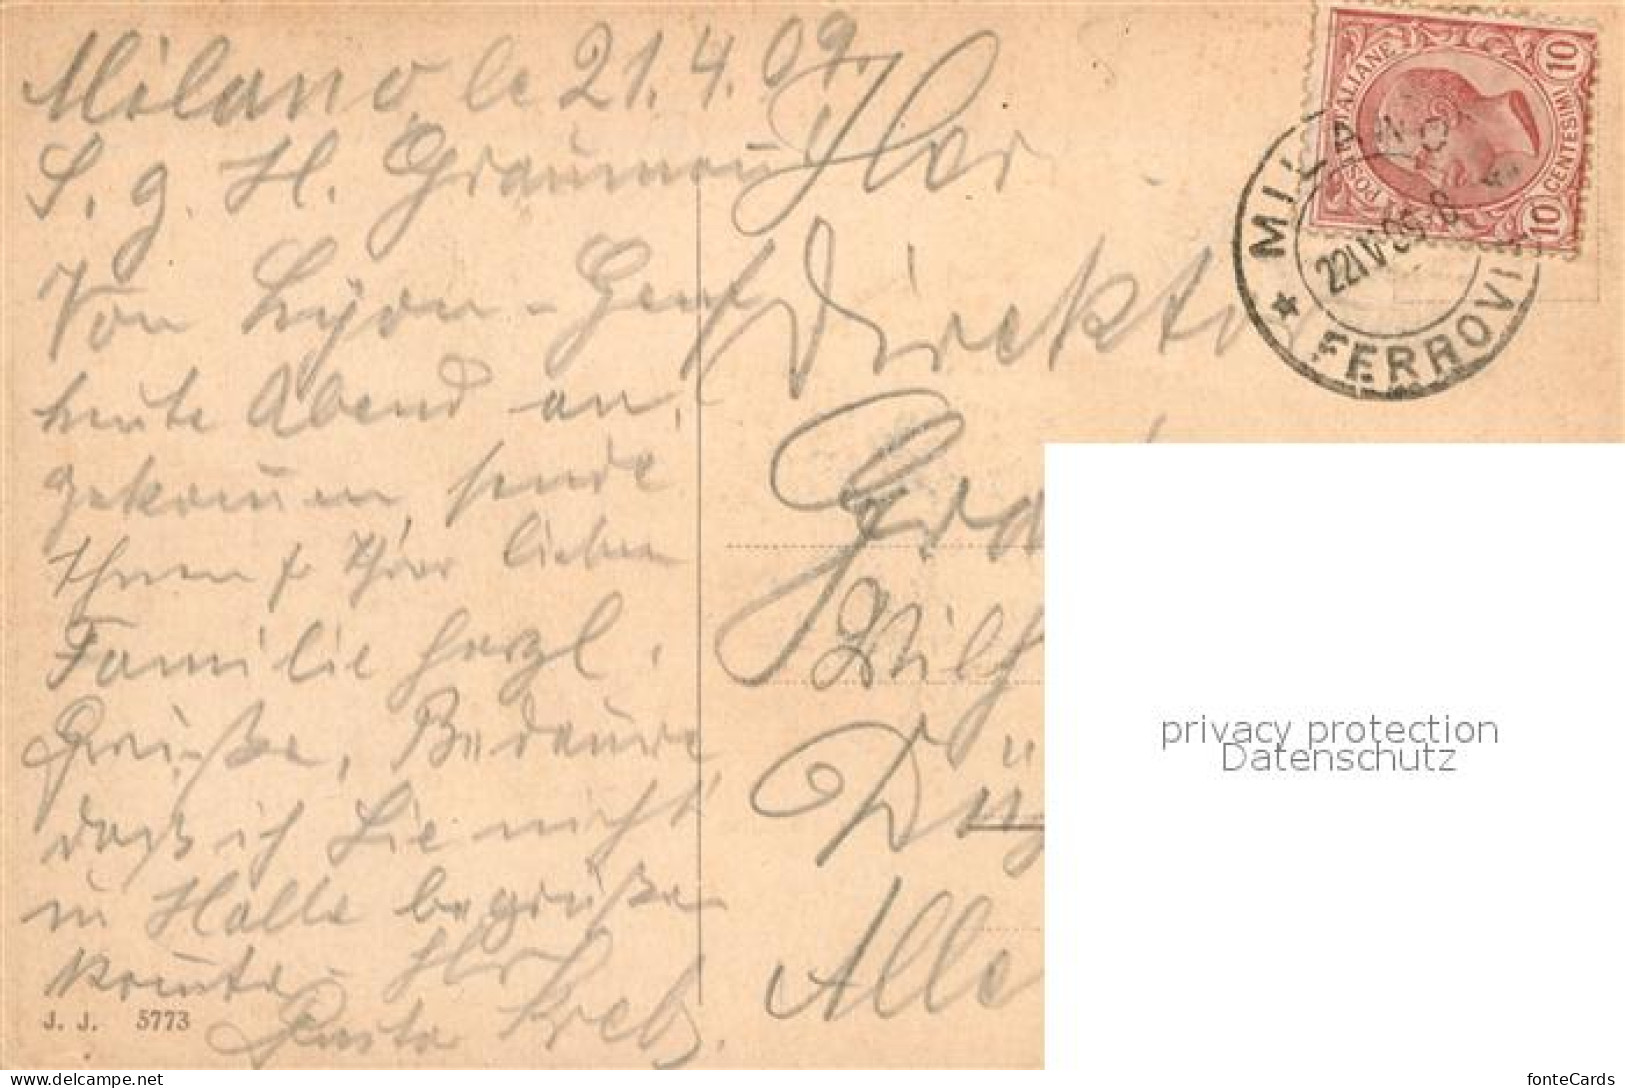 Milano, le 21.4.09.
S. g. H. Graumann
Von Lyon-Genf
heute Abend an,
gekommen, sende
Ihnen & Ihrer lieben
Familie herzl.
Grüße, Bedaure,
daß ich Sie nicht
in Halle begrüßen
konnte. Ihr
Gustav Krebs.
J. J. 5773
Herr
Direkto
Gra
Wilh
Alle
POSTE ITALIANE
10 CENTESIMI 10
MILANO
FERROVIA
privacy protection
Datenschutz
www.delcampe.net
fonteCards